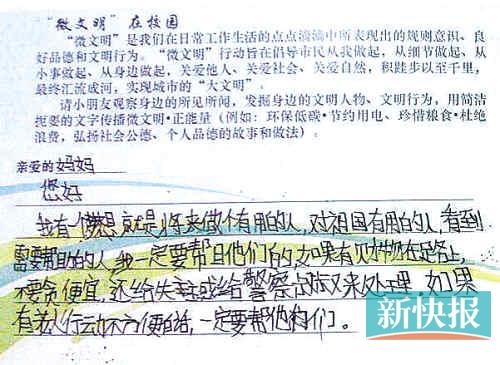 “微文明”在校园
“微文明”是我们在日常工作生活的点点滴滴中所表现出的规则意识、良
好品德和文明行为。“微文明”行动旨在倡导市民从我做起，从细节做起、从
小事做起、从身边做起，关爱他人、关爱社会、关爱自然，积跬步以至千里，
最终汇流成河，实现城市的“大文明”。
请小朋友观察身边的所见所闻，发掘身边的文明人物、文明行为，用简洁
扼要的文字传播微文明·正能量（例如：环保低碳·节约用电、珍惜粮食·杜绝
浪费，弘扬社会公德、个人品德的故事和做法）：
亲爱的妈妈
您好
我有个梦想就是将来做个有用的人，对祖国有用的人，看到
需要帮助的人，我一定要帮助他们的，如果有财物在路上，
不要贪便宜，还给失主或给警察叔叔来处理，如果
有人行动不方便的话，一定要帮他们。
新快报